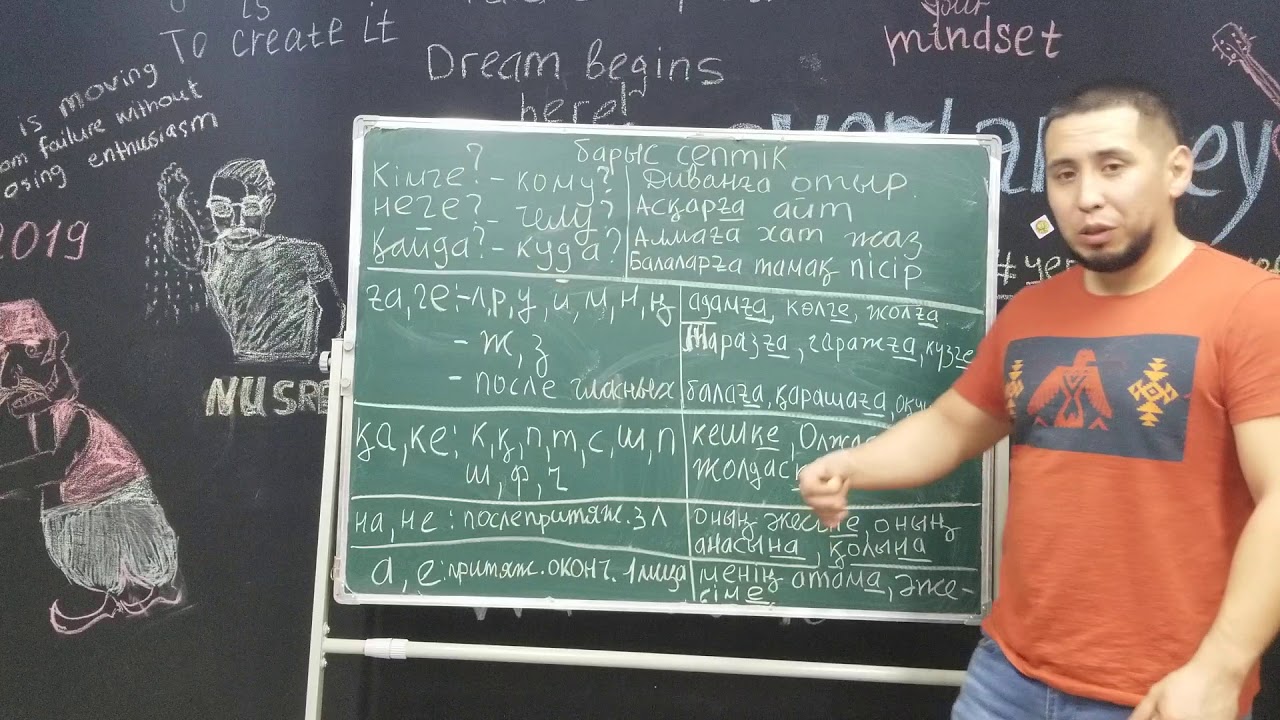 is
To create it
Your
mindset
Dream begins
here!
is moving
failure without
enthusiasm
2019
NUSR
?
барыс септік
Кімге? - кому?
неге? - чему?
қайда? - куда?
Диванға отыр.
Асқарға айт
Алмаға хат жаз
Балаларға тамақ пісір
ға, ге: - л, р, у, и, м, н, ң
- ж, з
- после гласных
адамға, көлге, жолға
Таразға, гаражға, күзге
балаға, қарашаға,
қа, ке: к, қ, п, т, с, ш, п
ш, ф, ч
кешке,
на, не: после притяж. 3 л
оның оның
анасына, қолына
а, е: притяж. оконч. 1 лица
менің атама, әже-
сіме